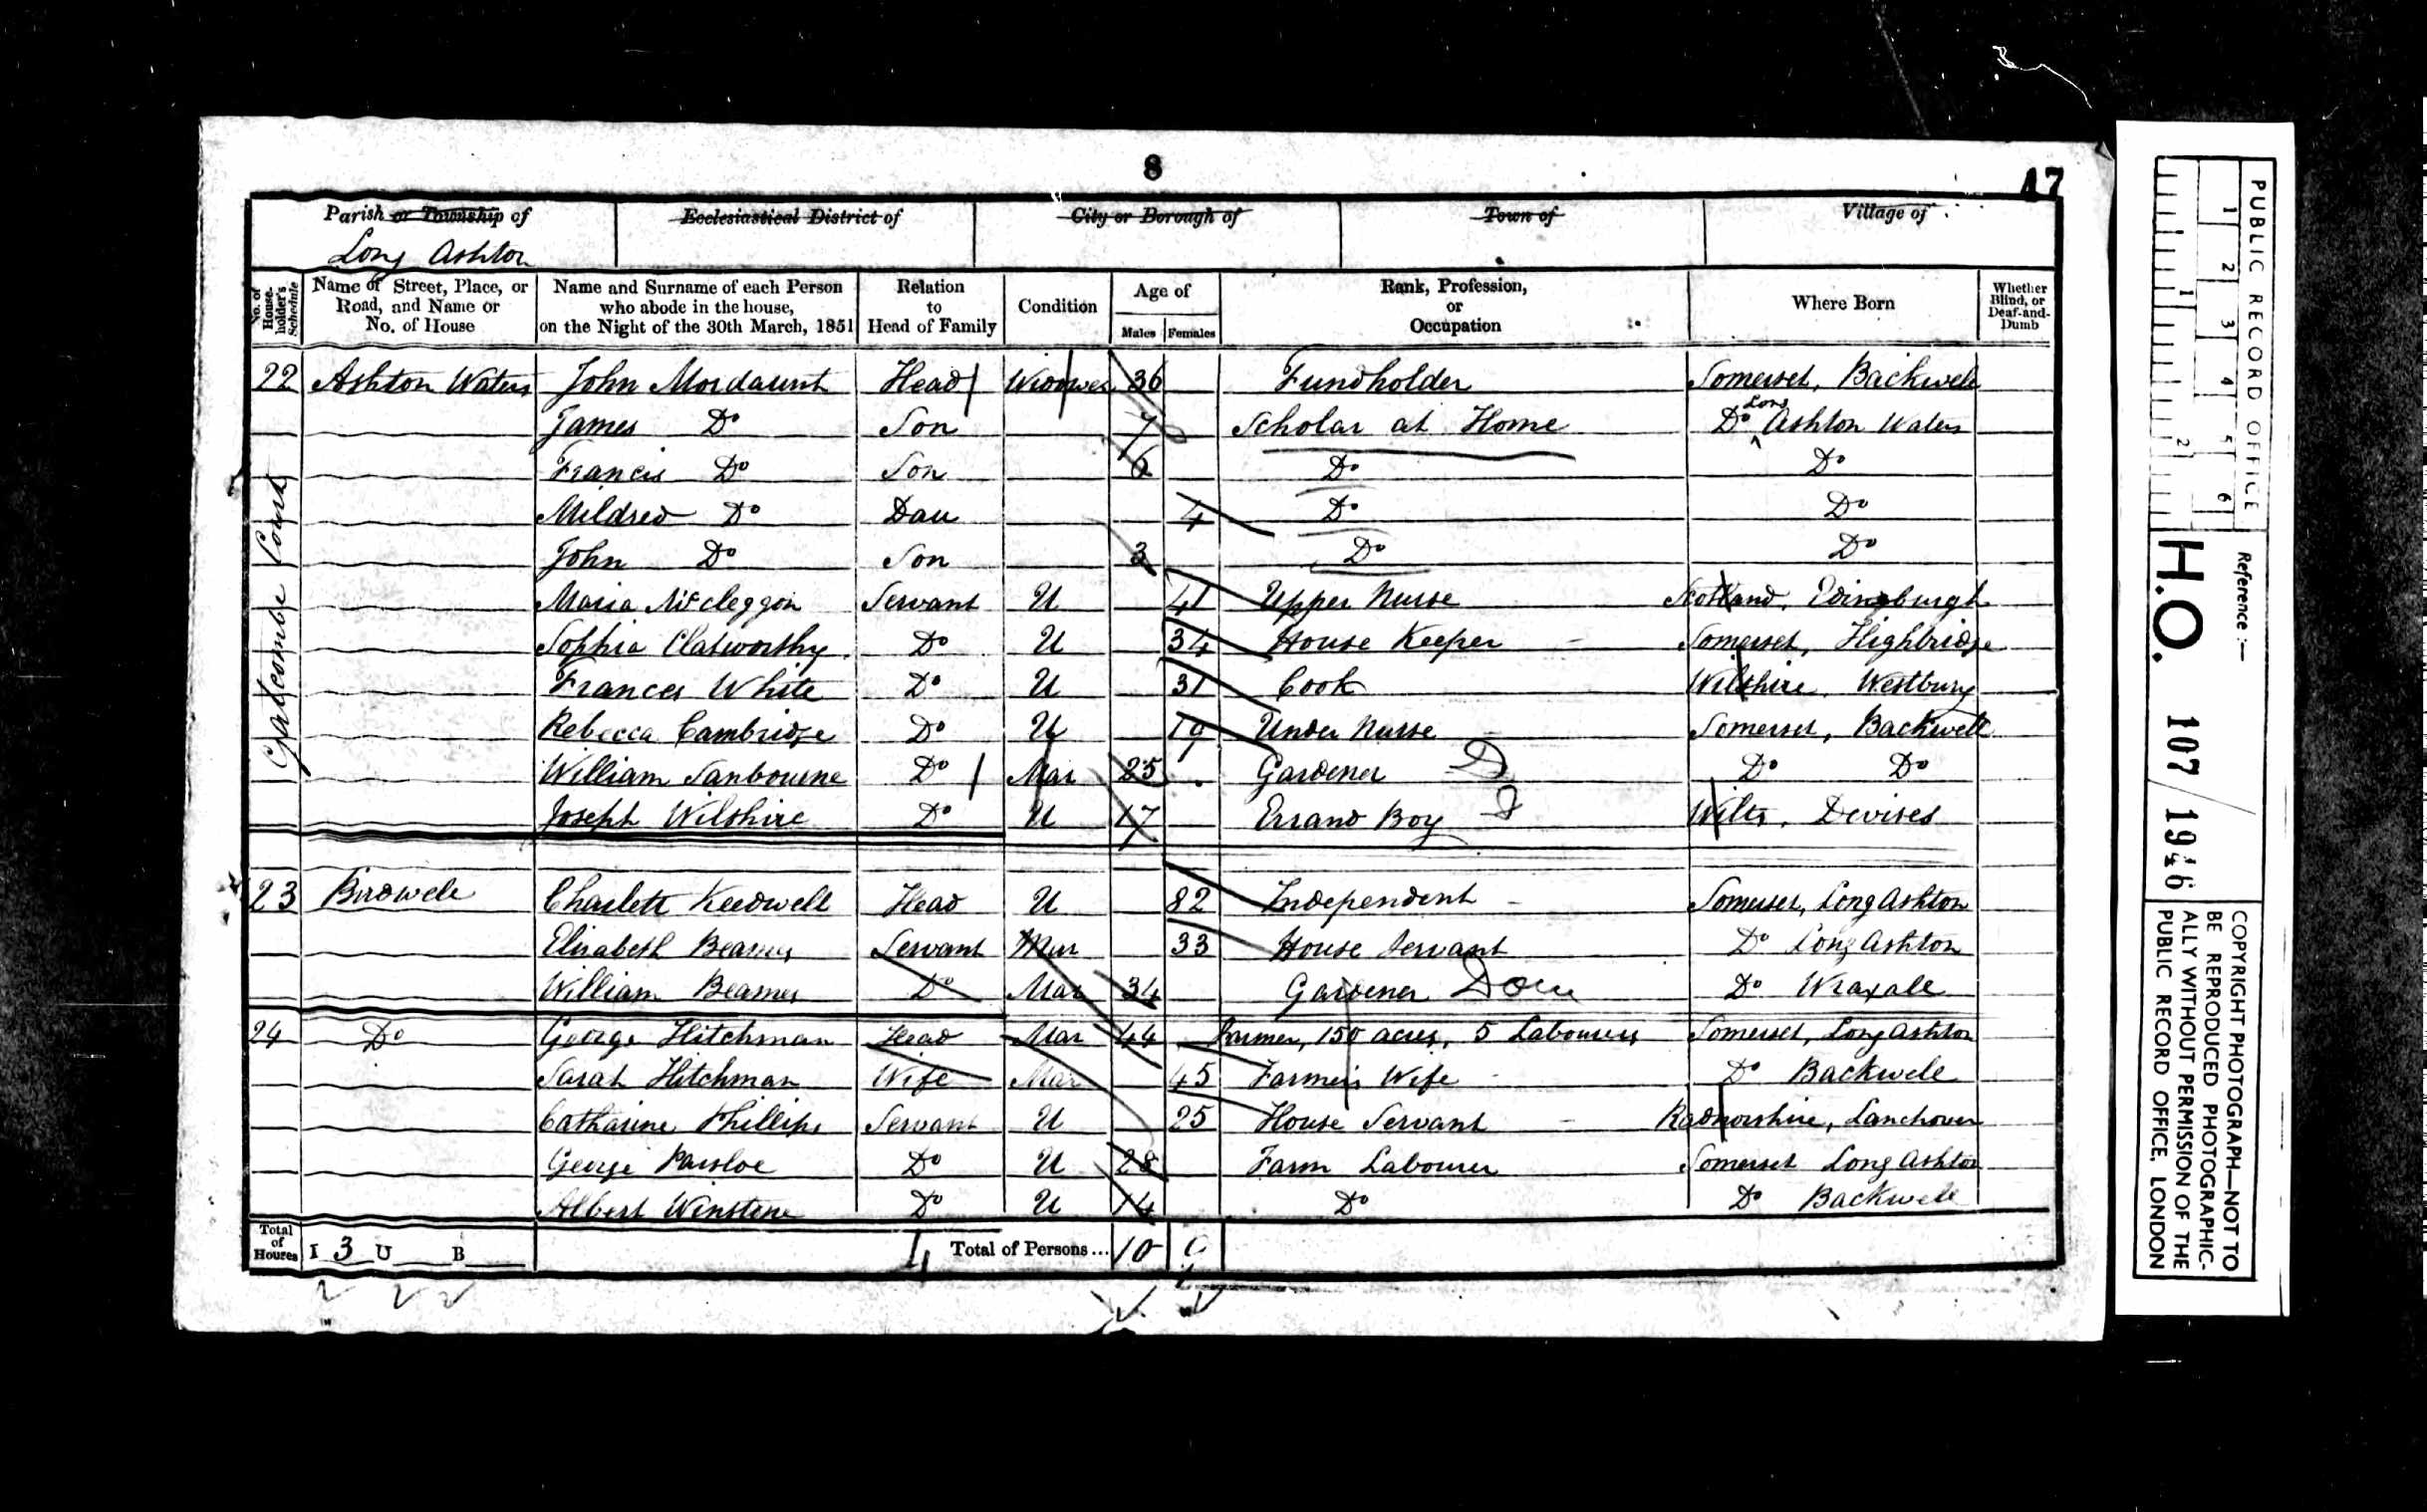 8
47
Parish or Township of
Long Ashton
Ecclesiastical District of
City or Borough of
Town of
Village of
No. of House-holder's Schedule
Name of Street, Place, or Road, and Name or No. of House
Name and Surname of each Person who abode in the house, on the Night of the 30th March, 1851
Relation to Head of Family
Condition
Age of
Males Females
Rank, Profession, or Occupation
Where Born
Whether Blind, or Deaf-and-Dumb
Gatcombe Court
22 Ashton Waters John Mordaunt Head Widower 36 Fundholder Somerset, Backwell
James Do Son 7 Scholar at Home Do Long Ashton Waters
Francis Do Son 6 Do Do
Mildred Do Dau 4 Do Do
John Do Son 3 Do Do
Maria McCleggon Servant U 41 Upper Nurse Scotland, Edinburgh
Sophia Clatworthy Do U 34 House Keeper Somerset, Highbridge
Frances White Do U 31 Cook Wiltshire, Westbury
Rebecca Cambridge Do U 19 Under Nurse Somerset, Backwell
William Sanbourne Do Mar 25 Gardener D Do Do
Joseph Wilshire Do U 17 Errand Boy Wilts, Devises
23 Birdwell Charlett Keedwell Head U 82 Independent Somerset, Long Ashton
Elizabeth Beames Servant Mar 33 House Servant Do Long Ashton
William Beames Do Mar 34 Gardener Dom Do Wraxall
24 Do George Hitchman Head Mar 44 Farmer, 150 acres, 5 Labourers Somerset, Long Ashton
Sarah Hitchman Wife Mar 45 Farmer's Wife Do Backwell
Catharine Phillips Servant U 25 House Servant Radnorshire,
George Parsloe Do U 28 Farm Labourer Somerset Long Ashton
Albert Winstone Do U 14 Do Do Backwell
Total of Houses I 3 U B 4 Total of Persons... 10 9
PUBLIC RECORD OFFICE
1 2 3 4 5 6
1 2
Reference:-
H.O. 107 / 1946
COPYRIGHT PHOTOGRAPH—NOT TO
BE REPRODUCED PHOTOGRAPHIC-
ALLY WITHOUT PERMISSION OF THE
PUBLIC RECORD OFFICE, LONDON